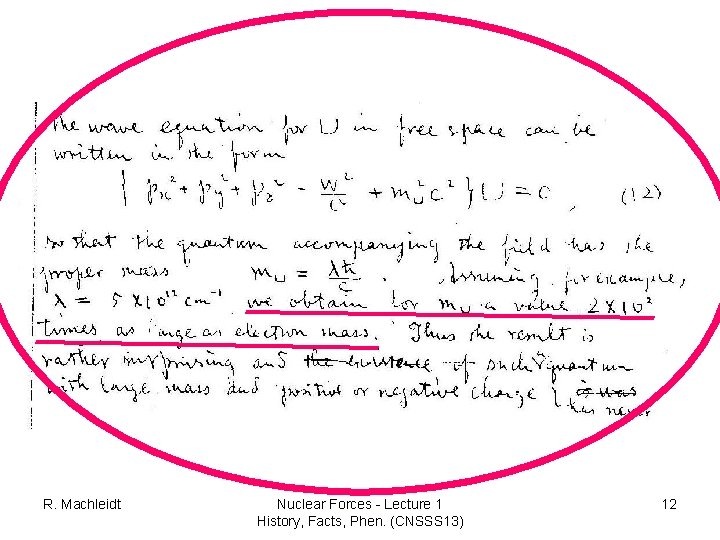 The wave equation for U in free space can be
written in the form
{ px² + py² + pz² - W²/c² + mU²c² } U = 0, (12)
so that the quantum accompanying the field has the
proper mass mU = λħ/c . Assuming, for example,
λ = 5 × 10¹² cm⁻¹ we obtain for mU a value 2 × 10²
times as large as electron mass. Thus the result is
rather surprising and the existence of such quantum
with large mass and positive or negative charge
has never
R. Machleidt
Nuclear Forces - Lecture 1
History, Facts, Phen. (CNSSS 13)
12